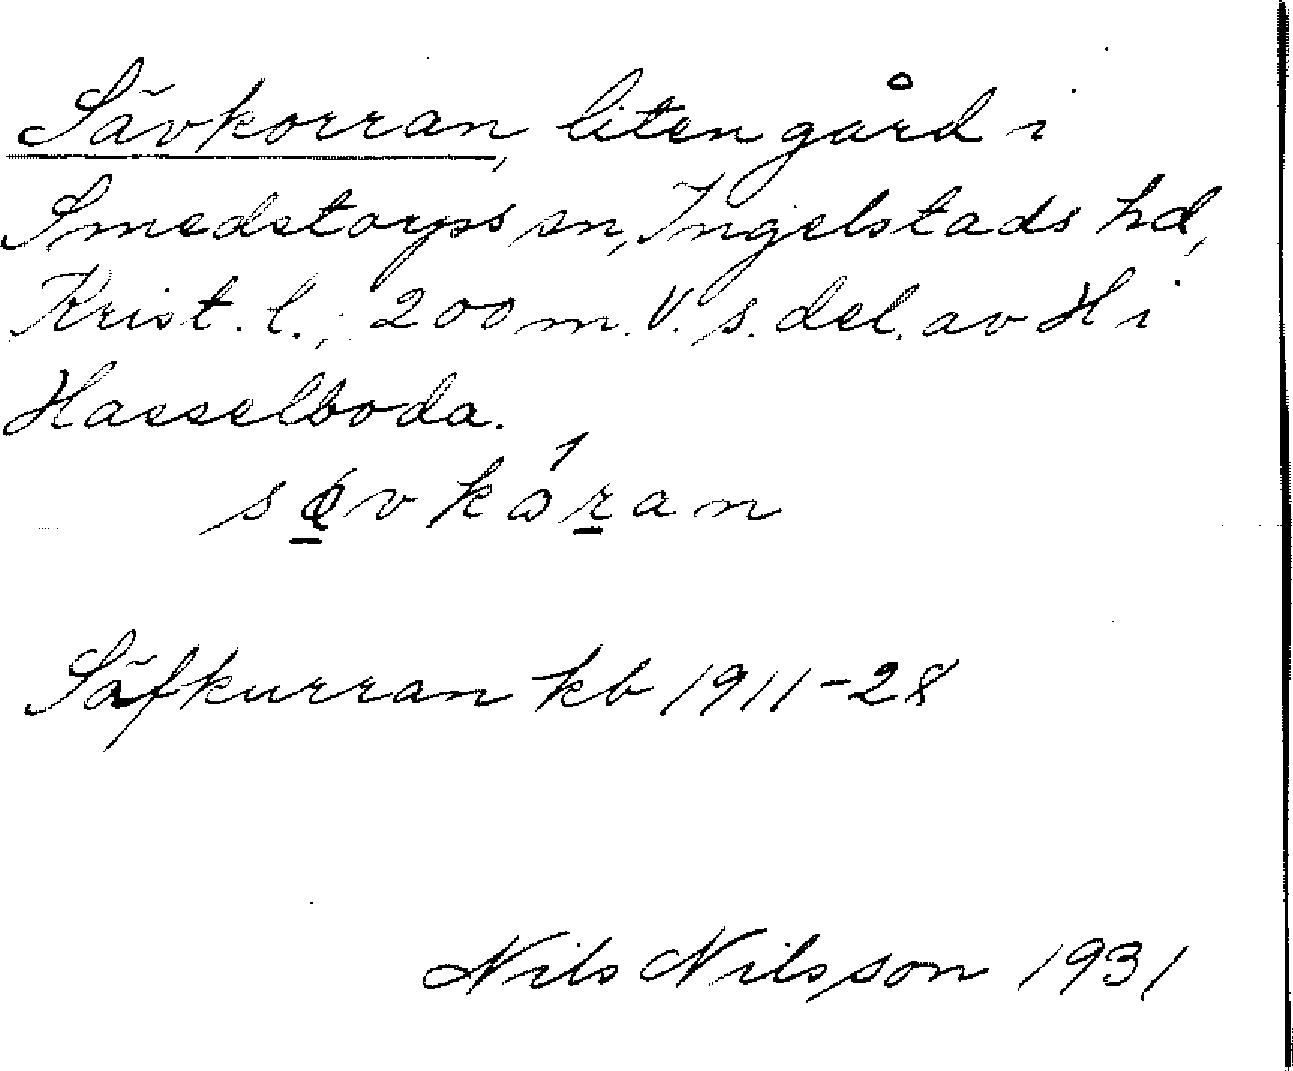 Sävkorran, liten gård i
Smedstorps sn, Ingelstads hd,
Krist. l.; 200 m. V. s. del. av H i
Hasselboda.
Säfkurran kb 1911-28
Nils Nilsson 1931